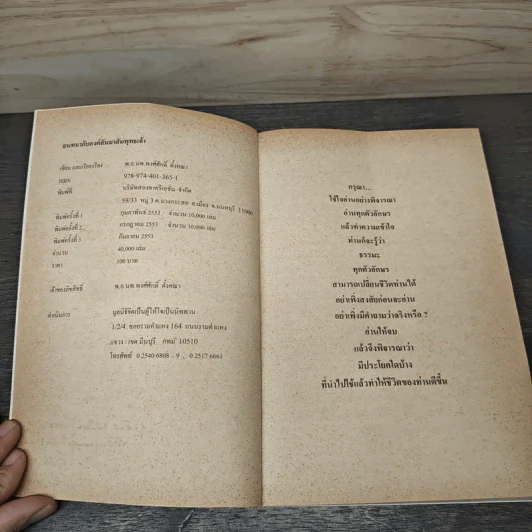 สนทนากับองค์สัมมาสัมพุทธเจ้า
เขียน และเรียบเรียง พ.อ.นพ.พงศ์ศักดิ์ ตั้งคณา
ISBN 978-974-401-365-1
พิมพ์ที่ บริษัทสองขาครีเอชั่น จำกัด
59/33 หมู่ 3 ต.บางกระสอ อ.เมือง จ.นนทบุรี 11000
พิมพ์ครั้งที่ 1 กุมภาพันธ์ 2553 จำนวน 10,000 เล่ม
พิมพ์ครั้งที่ 2 กรกฎาคม 2553 จำนวน 10,000 เล่ม
พิมพ์ครั้งที่ 3 กันยายน 2553
จำนวน 40,000 เล่ม
ราคา 100 บาท
เจ้าของลิขสิทธิ์ พ.อ.นพ.พงศ์ศักดิ์ ตั้งคณา
ดำเนินการ มูลนิธิจิตเป็นผู้ให้ใจเป็นนิพพาน
1/2/4 ซอยรามคำแหง 164 ถนนรามคำแหง
แขวง/เขต มีนบุรี กทม 10510
โทรศัพท์ 0 2540 6808 – 9 , 0 2517 6661
กรุณา...
ใช้ใจอ่านอย่างพิจารณา
อ่านทุกตัวอักษร
แล้วทำความเข้าใจ
ท่านก็จะรู้ว่า
ธรรมะ
ทุกตัวอักษร
สามารถเปลี่ยนชีวิตท่านได้
อย่าเพิ่งสงสัยก่อนจะอ่าน
อย่าเพิ่งมีคำถามว่าจริงหรือ ?
อ่านให้จบ
แล้วจึงพิจารณาว่า
มีประโยชน์ใดบ้าง
ที่นำไปใช้แล้วทำให้ชีวิตของท่านดีขึ้น